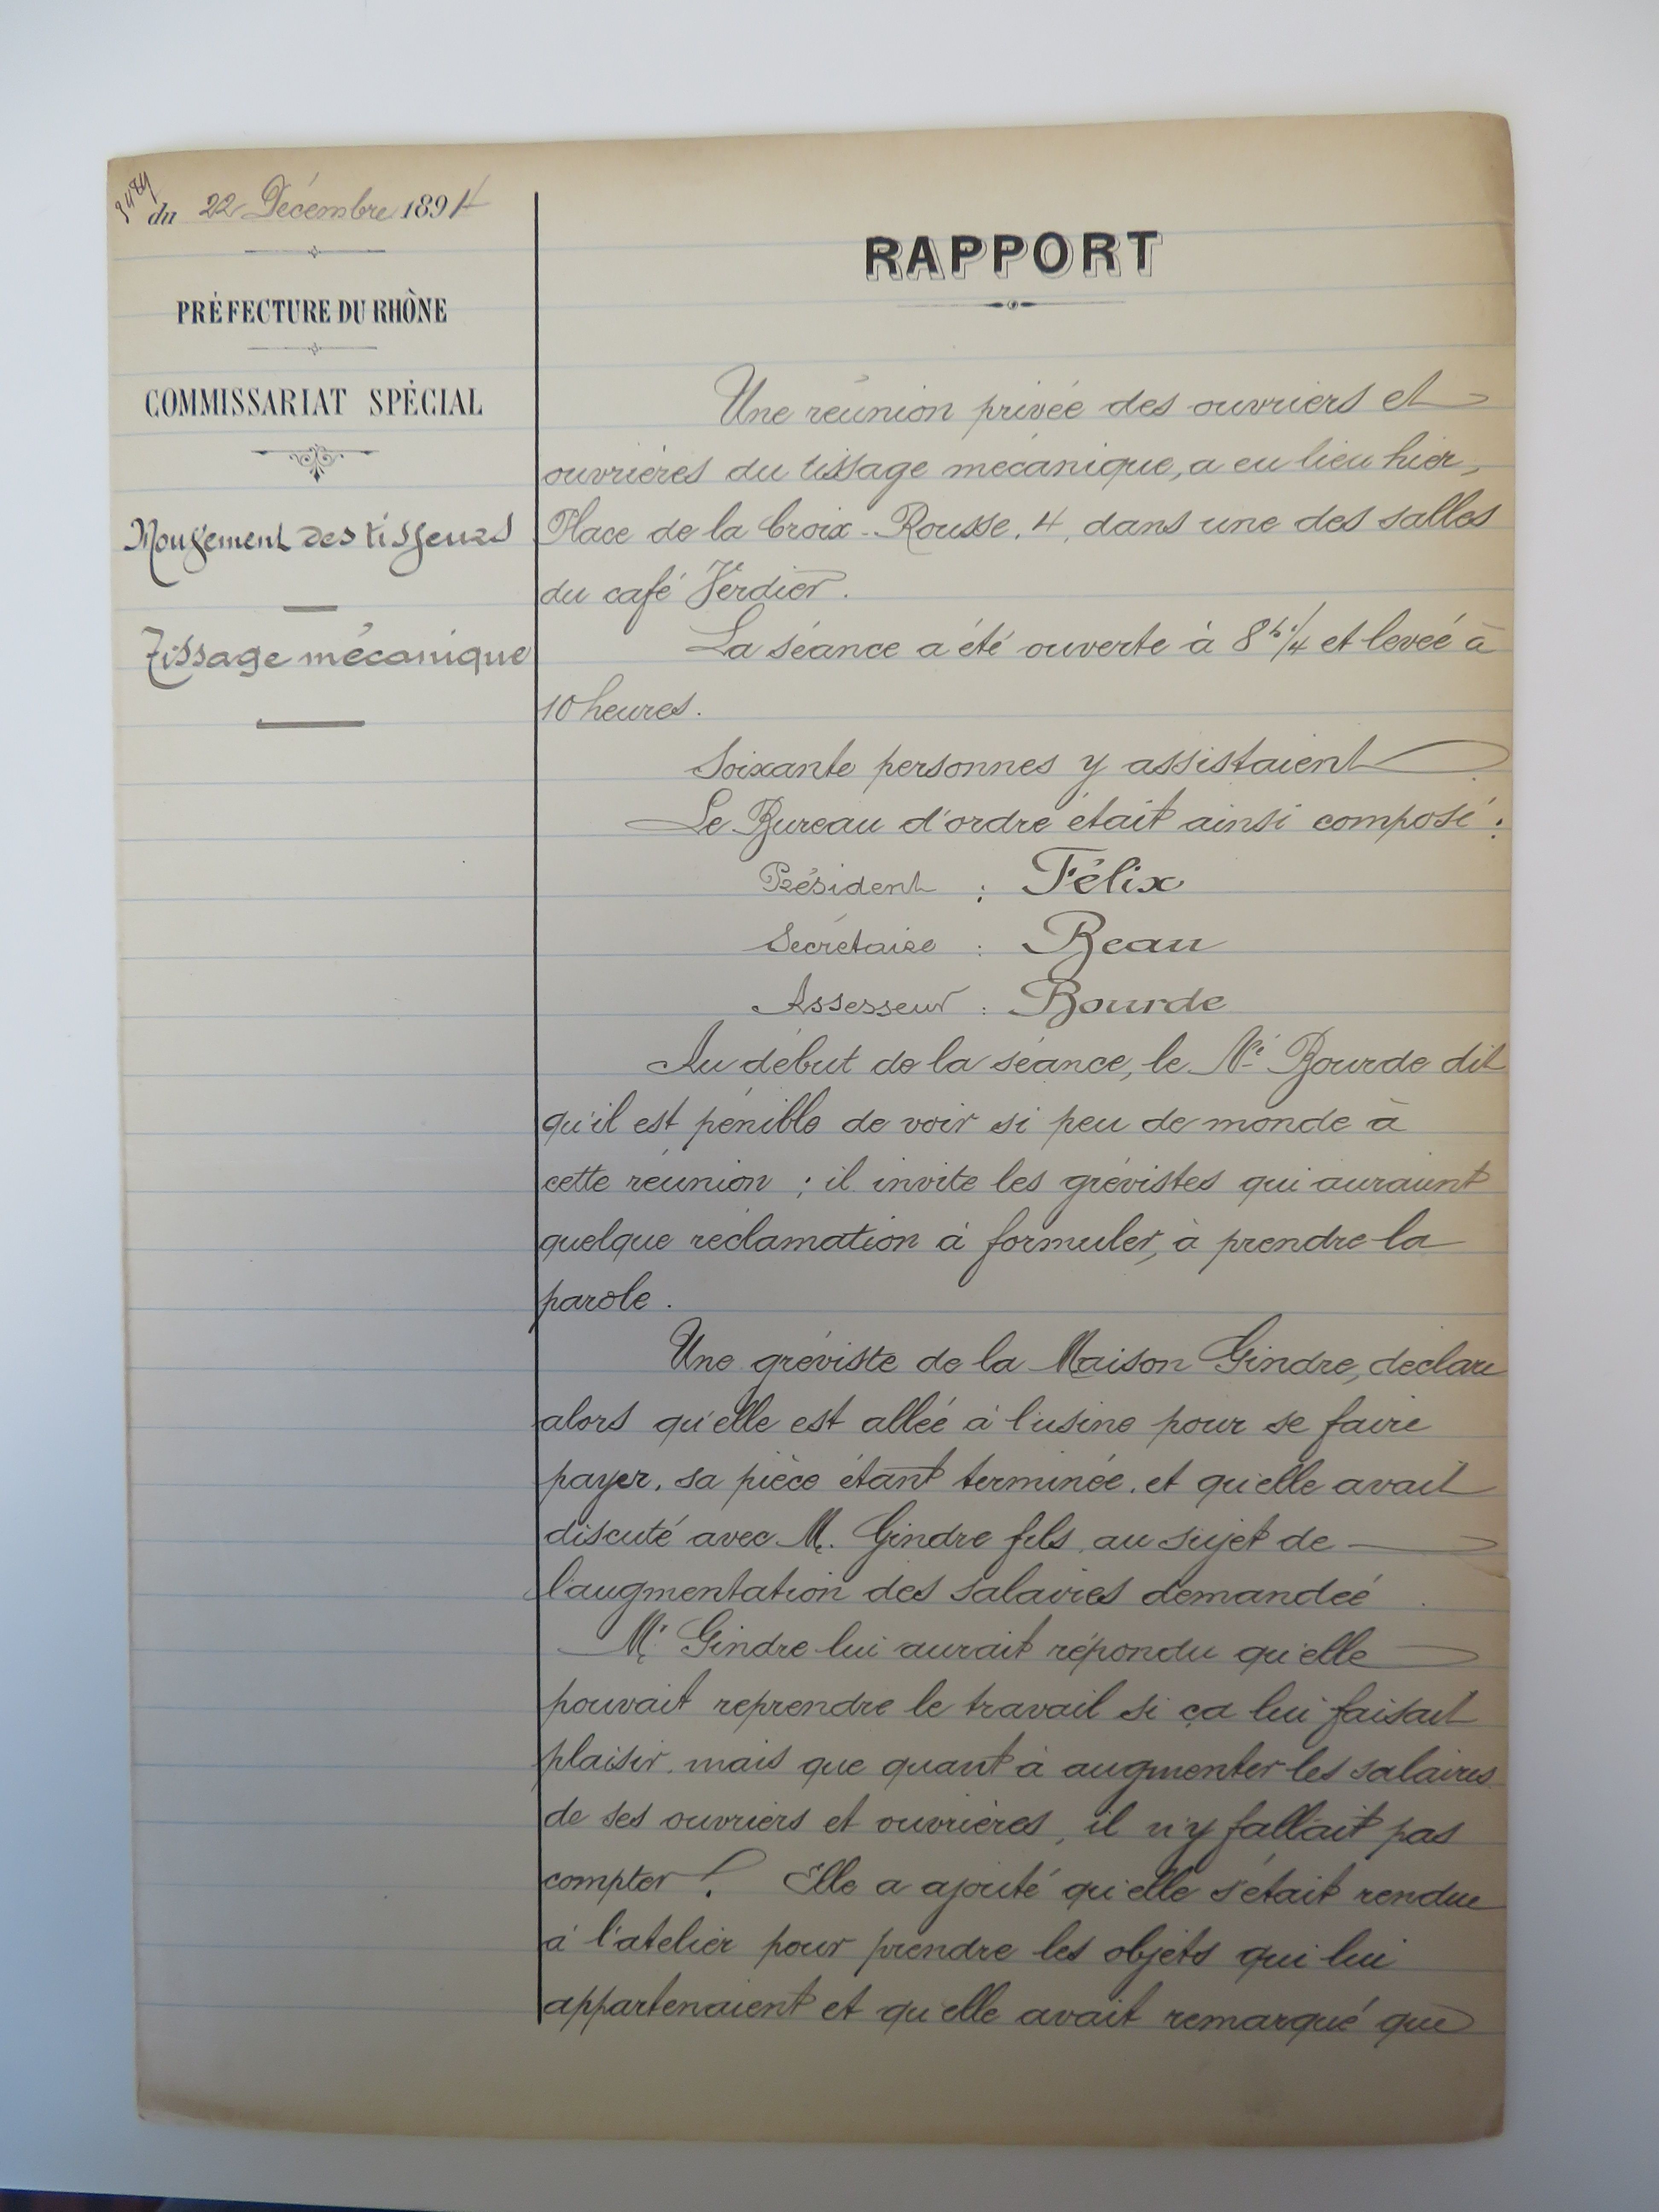 du 22 Décembre 1894
PRÉFECTURE DU RHÔNE
COMMISSARIAT SPÉCIAL
Mouvement des tisseurs
Tissage mécanique
RAPPORT
Une réunion privée des ouvriers et
ouvrières du tissage mécanique, a eu lieu hier,
Place de la Croix-Rousse, 4, dans une des salles
du café Verdier.
La séance a été ouverte à 8h 1/4 et levée à
10 heures.
Soixante personnes y assistaient
Le Bureau d'ordre était ainsi composé :
Président : Félix
Secrétaire : Beau
Assesseur : Bourde
Au début de la séance, le Né Bourde dit
qu'il est pénible de voir si peu de monde à
cette réunion ; il invite les grévistes qui auraient
quelque réclamation à formuler, à prendre la
parole.
Une gréviste de la Maison Gindre, déclare
alors qu'elle est allée à l'usine pour se faire
payer, sa pièce étant terminée, et qu'elle avait
discuté avec M. Gindre fils, au sujet de
l'augmentation des salaires demandée
Mr Gindre lui aurait répondu qu'elle
pouvait reprendre le travail si ça lui faisait
plaisir, mais que quant à augmenter les salaires
de ses ouvriers et ouvrières, il n'y fallait pas
compter ! Elle a ajouté qu'elle s'était rendue
à l'atelier pour prendre les objets qui lui
appartenaient et qu'elle avait remarqué que